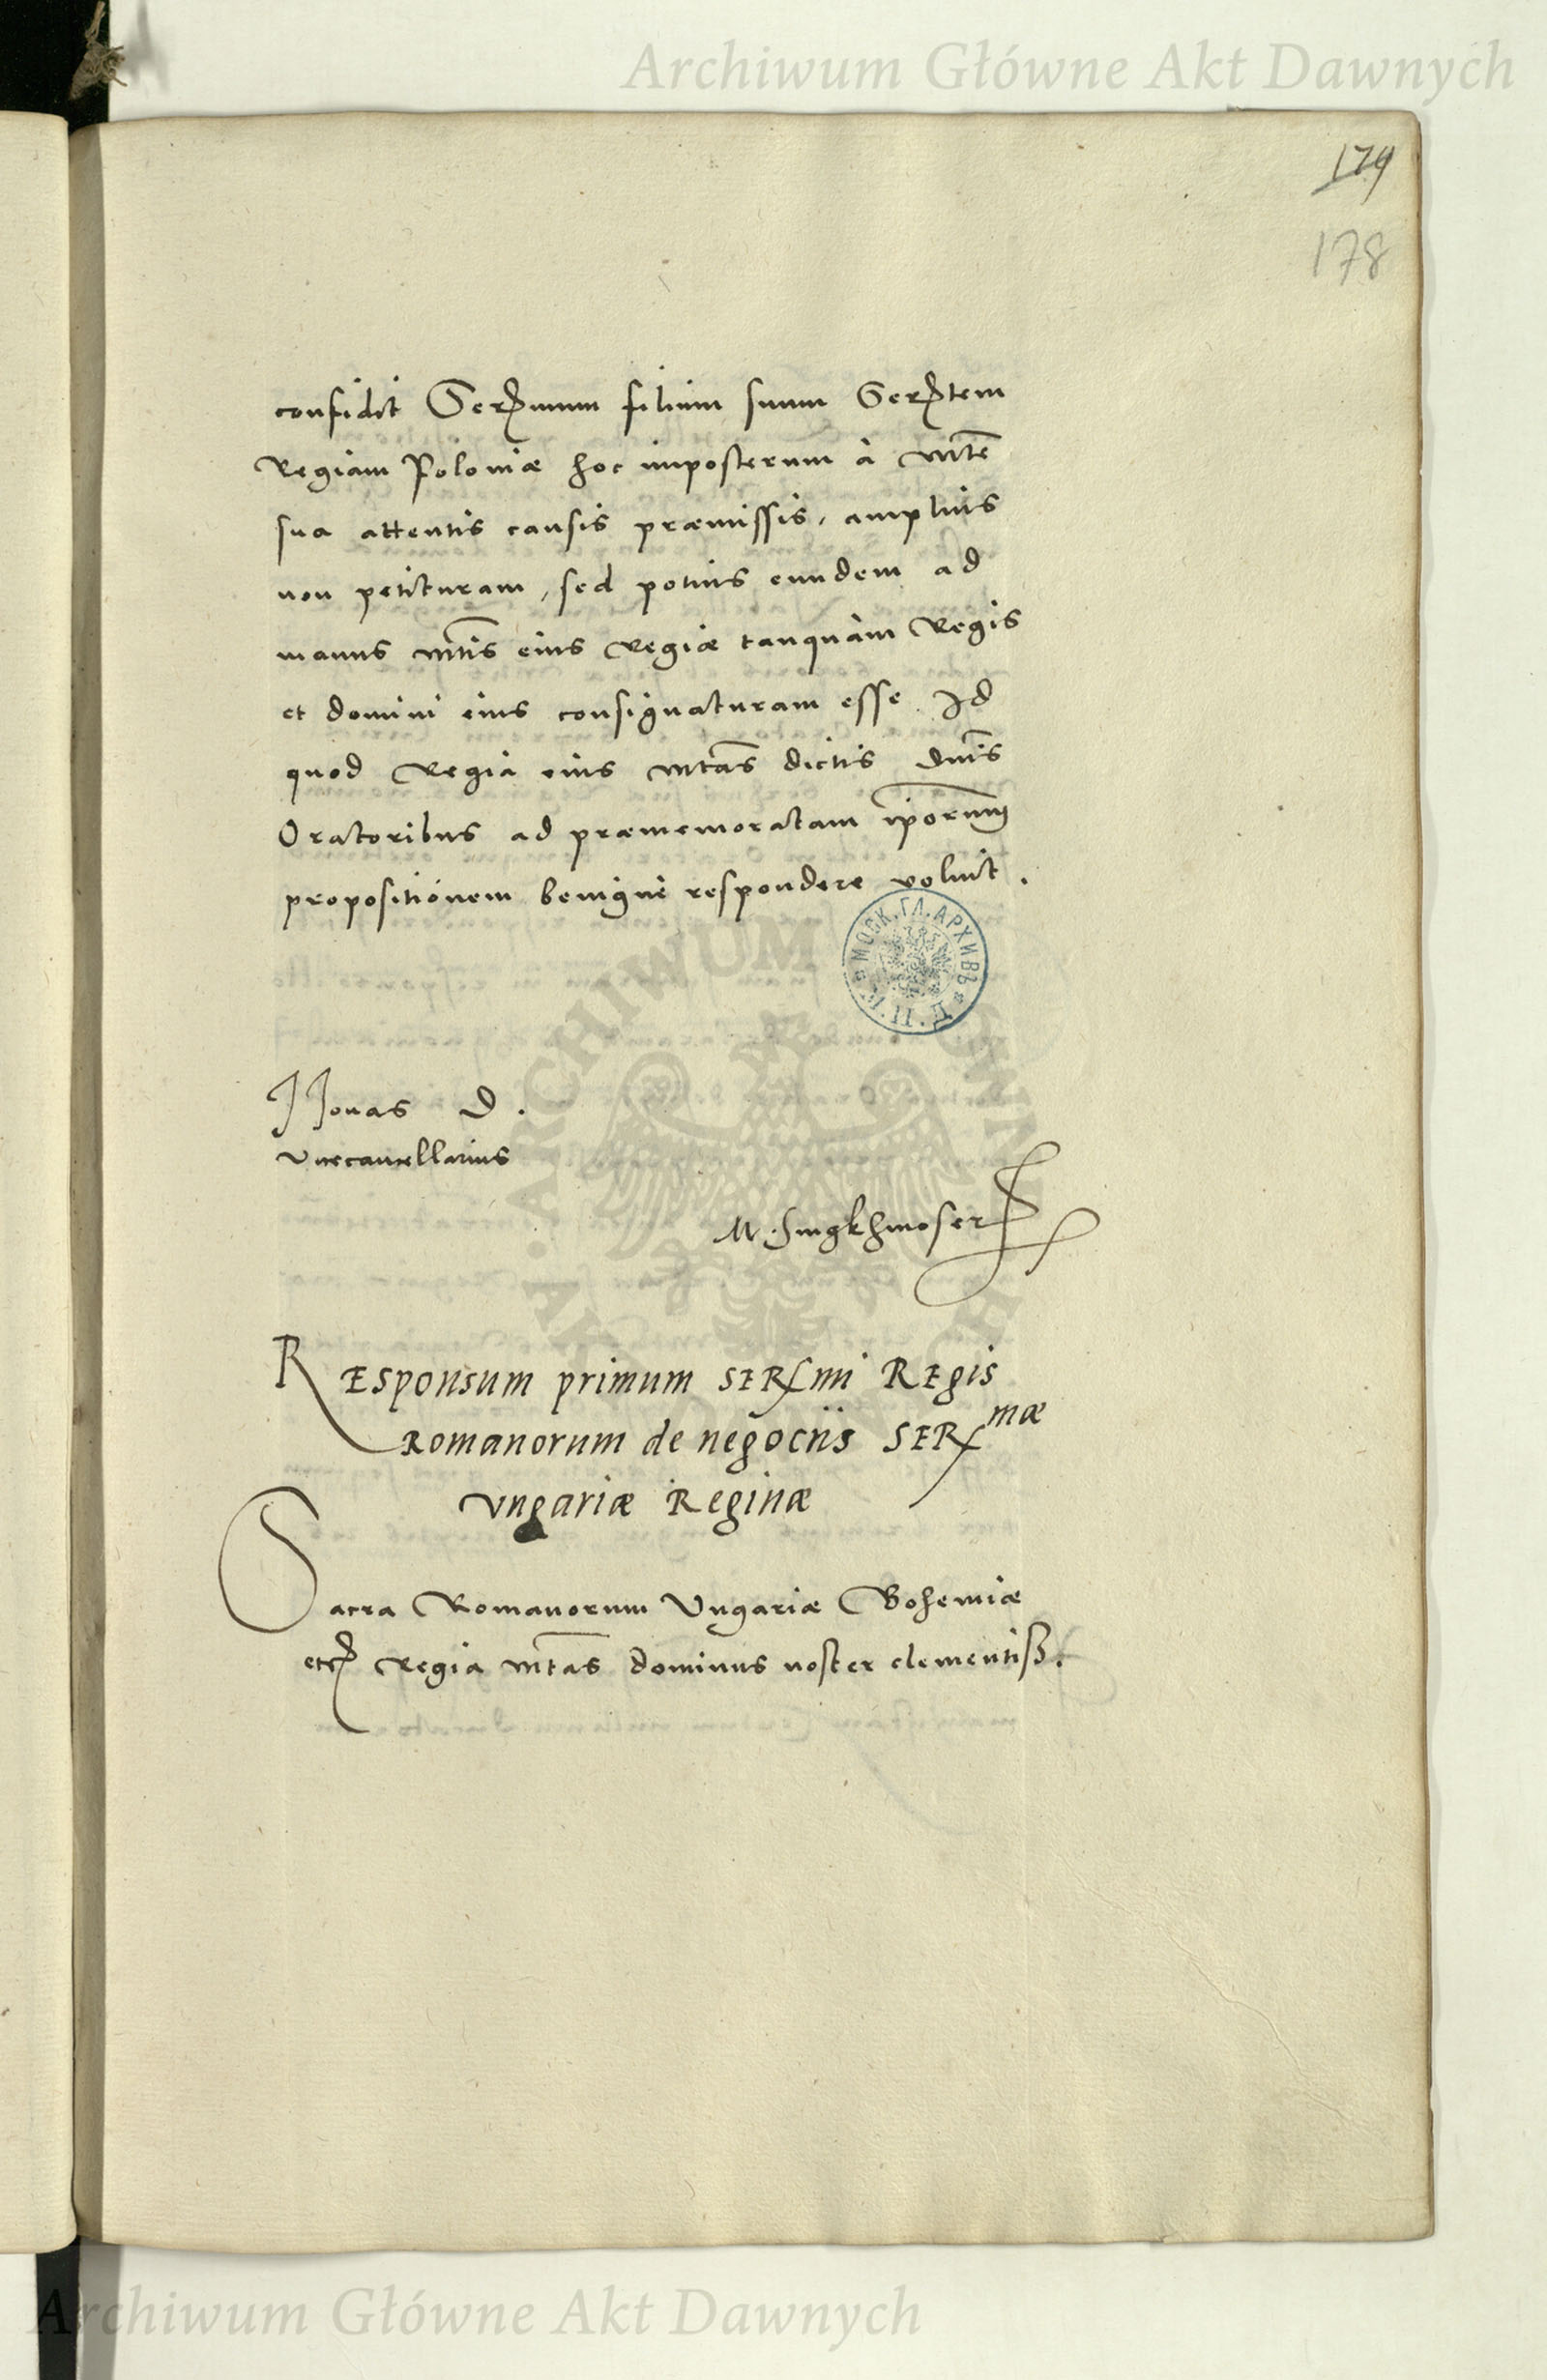 Archiwum Główne Akt Dawnych
179
178
confidit Sermum filium suum Sertem
Regiam Poloniæ hoc imposterum à Mtē
sua attentis causis præmissis, amplius
non petituram, sed potius eundem ad
manus Mtis eius Regiæ tanquàm Regis
et domini eius consignaturam esse. Id
quod Regia eius Mtas dictis Dnis
Oratoribus ad præmemoratam ipsorum
propositionem benignè respondere voluit.
МОСК.ГЛ.АРХИВЪ
Jonas D.
Vicecancellarius
M. Singkhmoser
REsponsum primum SERmi REgis
Romanorum de negociis SERmæ
Vngariæ Reginæ
Sacra Romanorum Vngariæ Bohemiæ
etc Regia Mtas dominus noster clementiss.
Archiwum Główne Akt Dawnych